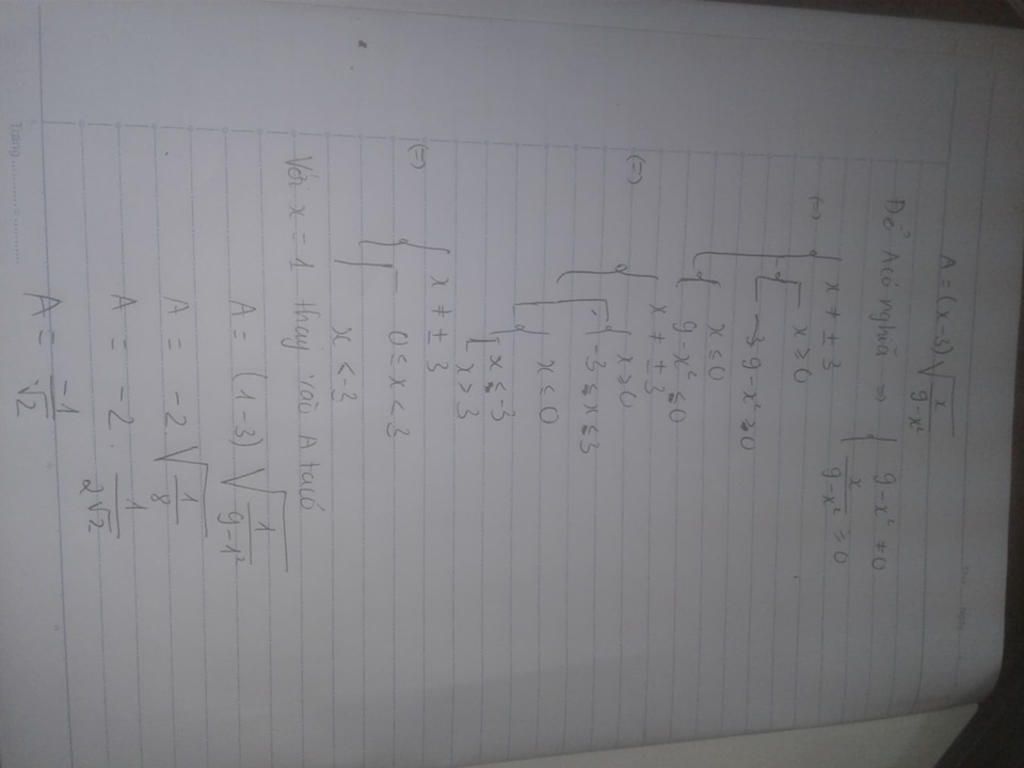 A = (x-3)√(x/(9-x²))
Để A có nghĩa ⇔ { 9-x² ≠ 0
x/(9-x²) ≥ 0
⇔ { x ≠ ±3
[ { x ≥ 0
9-x² ≥ 0
{ x ≤ 0
9-x² ≤ 0
(=) { x ≠ ±3
[ { x ≥ 0
-3 ≤ x ≤ 3
{ x ≤ 0
[ x ≤ -3
x ≥ 3
(=) { x ≠ ±3
[ 0 ≤ x < 3
x < -3
Với x = 1 thay vào A ta có
A = (1-3)√(1/(9-1²))
A = -2√(1/8)
A = -2 . 1/(2√2)
A = -1/√2
Trang